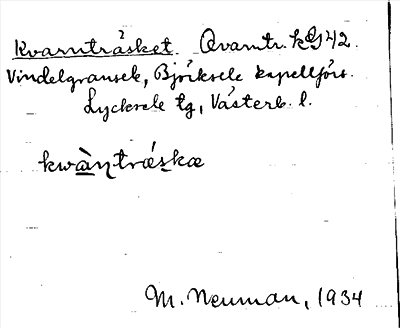 Kvarnträsket Qvarntr. kG42.
Vindelgransele, Björksele kapellförs.
Lycksele tg, Västerb. l.
kwànträskæ
M. Neuman, 1934